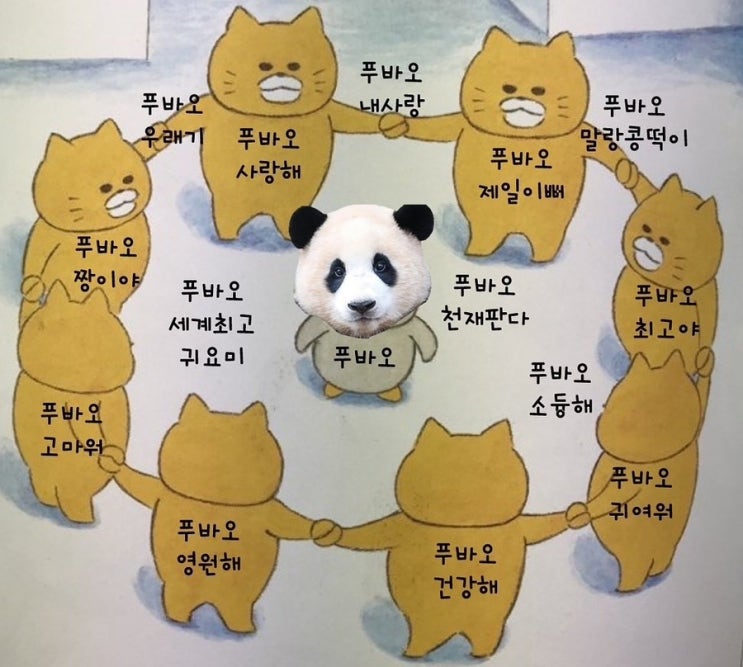 푸바오
내사랑
푸바오
우래기
푸바오
말랑콩떡이
푸바오
사랑해
푸바오
제일이뻐
푸바오
짱이야
푸바오
세계최고
귀요미
푸바오
천재판다
푸바오
최고야
푸바오
푸바오
소듕해
푸바오
고마워
푸바오
귀여워
푸바오
영원해
푸바오
건강해